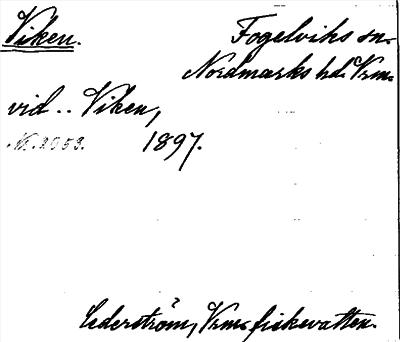 Viken.
Fogelviks sn.
Nordmarks hd. Vrm.
vid .. Viken,
1897.
Cederström, Vrms fiskevatten.